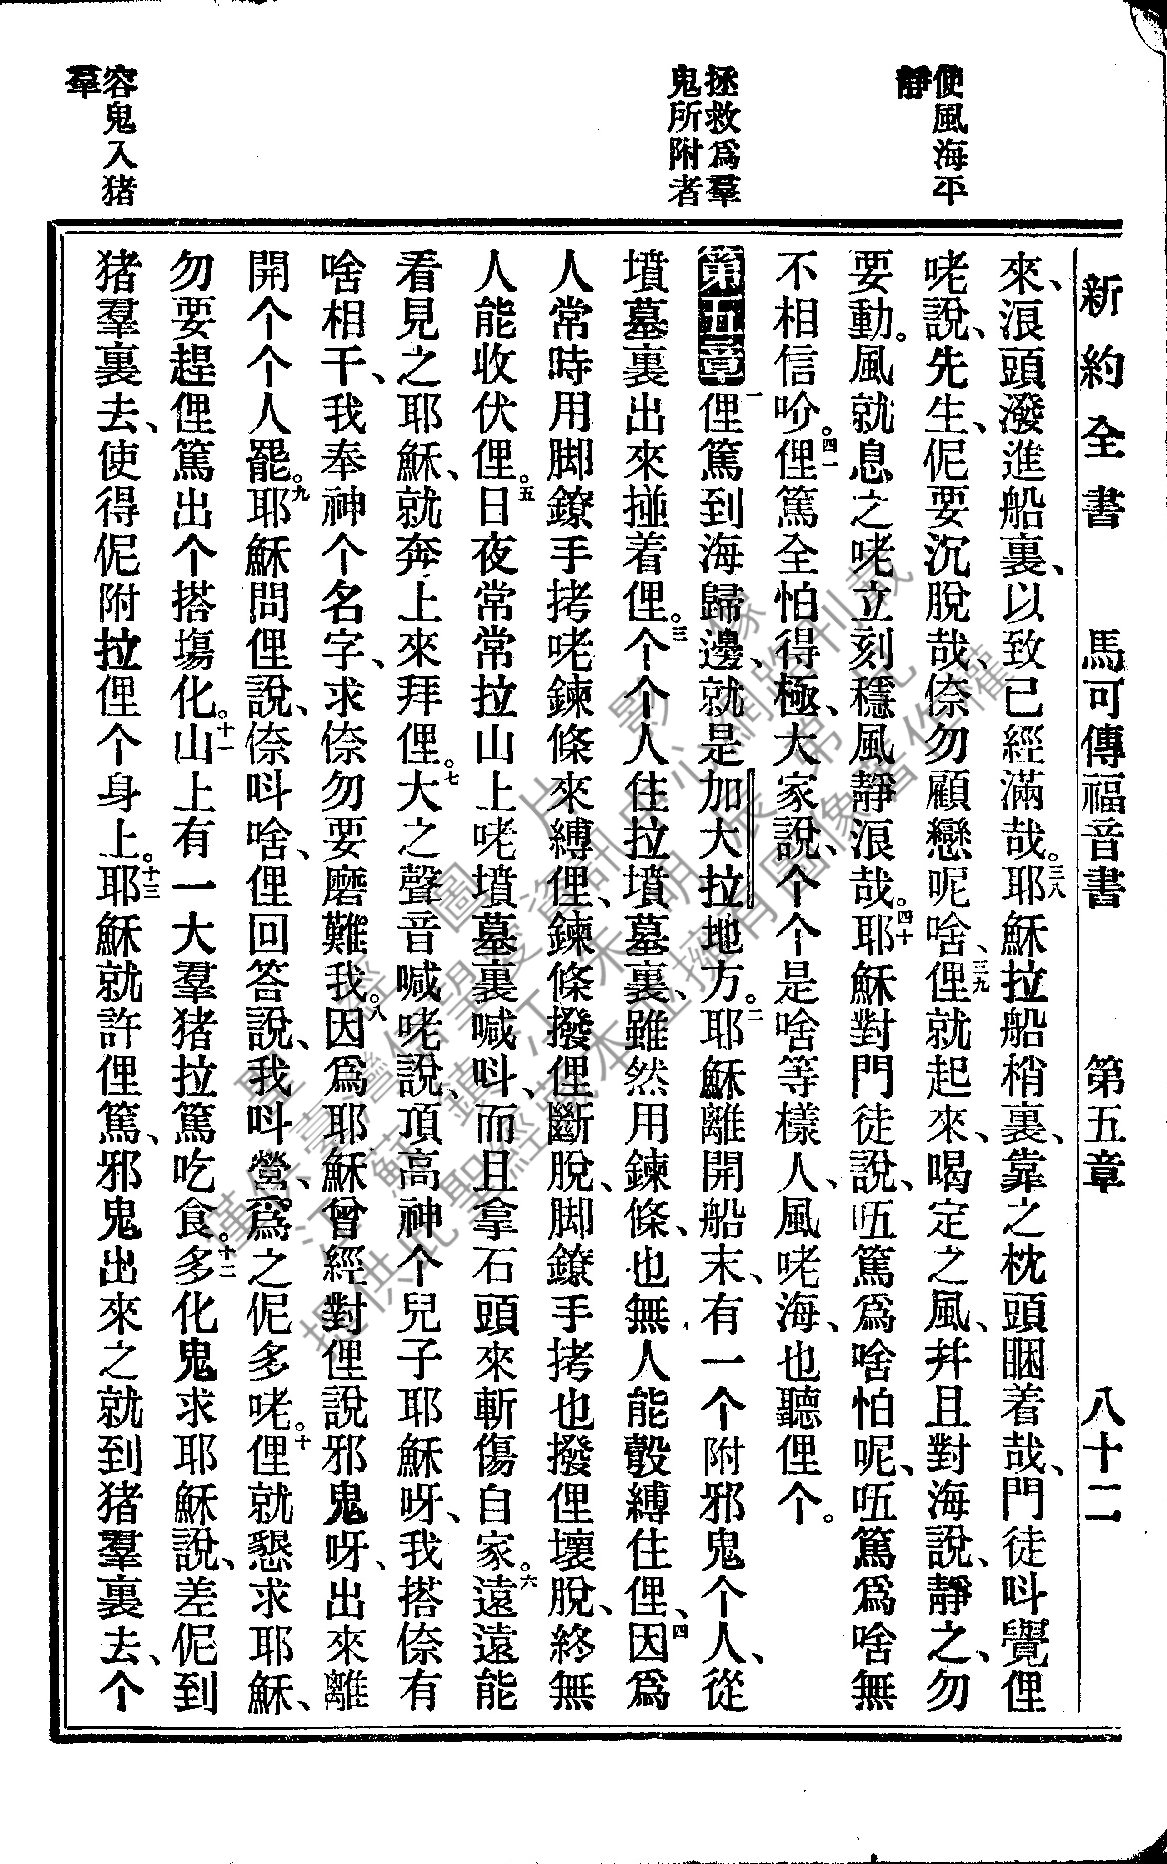 使風海平
靜
拯救爲羣
鬼所附者
容鬼入猪
羣
新約全書 馬可傳福音書 第五章 八十二
來、浪頭潑進船裏、以致已經滿哉。三八耶穌拉船梢裏、靠之枕頭睏着哉、門徒呌覺俚
咾說、先生、伲要沉脫哉、倷勿顧戀呢啥、三九俚就起來、喝定之風、幷且對海說、靜之、勿
要動。風就息之咾立刻穩風靜浪哉。四十耶穌對門徒說、㕶篤爲啥怕呢、㕶篤爲啥無
不相信吤。四一俚篤全怕得極、大家說、个个是啥等樣人、風咾海、也聽俚个。
第五章 一俚篤到海歸邊、就是加大拉地方。二耶穌離開船末、有一个附邪鬼个人、從
墳墓裏出來掽着俚。三个个人住拉墳墓裏、雖然用鍊條、也無人能彀縛住俚、四因爲
人常時用脚鐐手拷咾鍊條來縛俚、鍊條撥俚斷脫、脚鐐手拷也撥俚壞脫、終無
人能收伏俚。五日夜常常拉山上咾墳墓裏喊呌、而且拿石頭來斬傷自家。六遠遠能
看見之耶穌、就奔上來拜俚。七大之聲音喊咾說、頂高神个兒子耶穌呀、我搭倷有
啥相干、我奉神个名字、求倷勿要磨難我。八因爲耶穌曾經對俚說邪鬼呀、出來離
開个个人罷。九耶穌問俚說、倷呌啥、俚回答說、我呌營、爲之伲多咾。十俚就懇求耶穌、
勿要趕俚篤出个搭塲化。十一山上有一大羣猪拉篤吃食。十二多化鬼求耶穌說、差伲到
猪羣裏去、使得伲附拉俚个身上。十三耶穌就許俚篤、邪鬼出來之就到猪羣裏去、个
聖經圖片影像
僅供臺灣信望愛資訊中心網路刊載
江蘇鎮江朱明恢弟
提供此聖經藏本並擁有圖像著作權